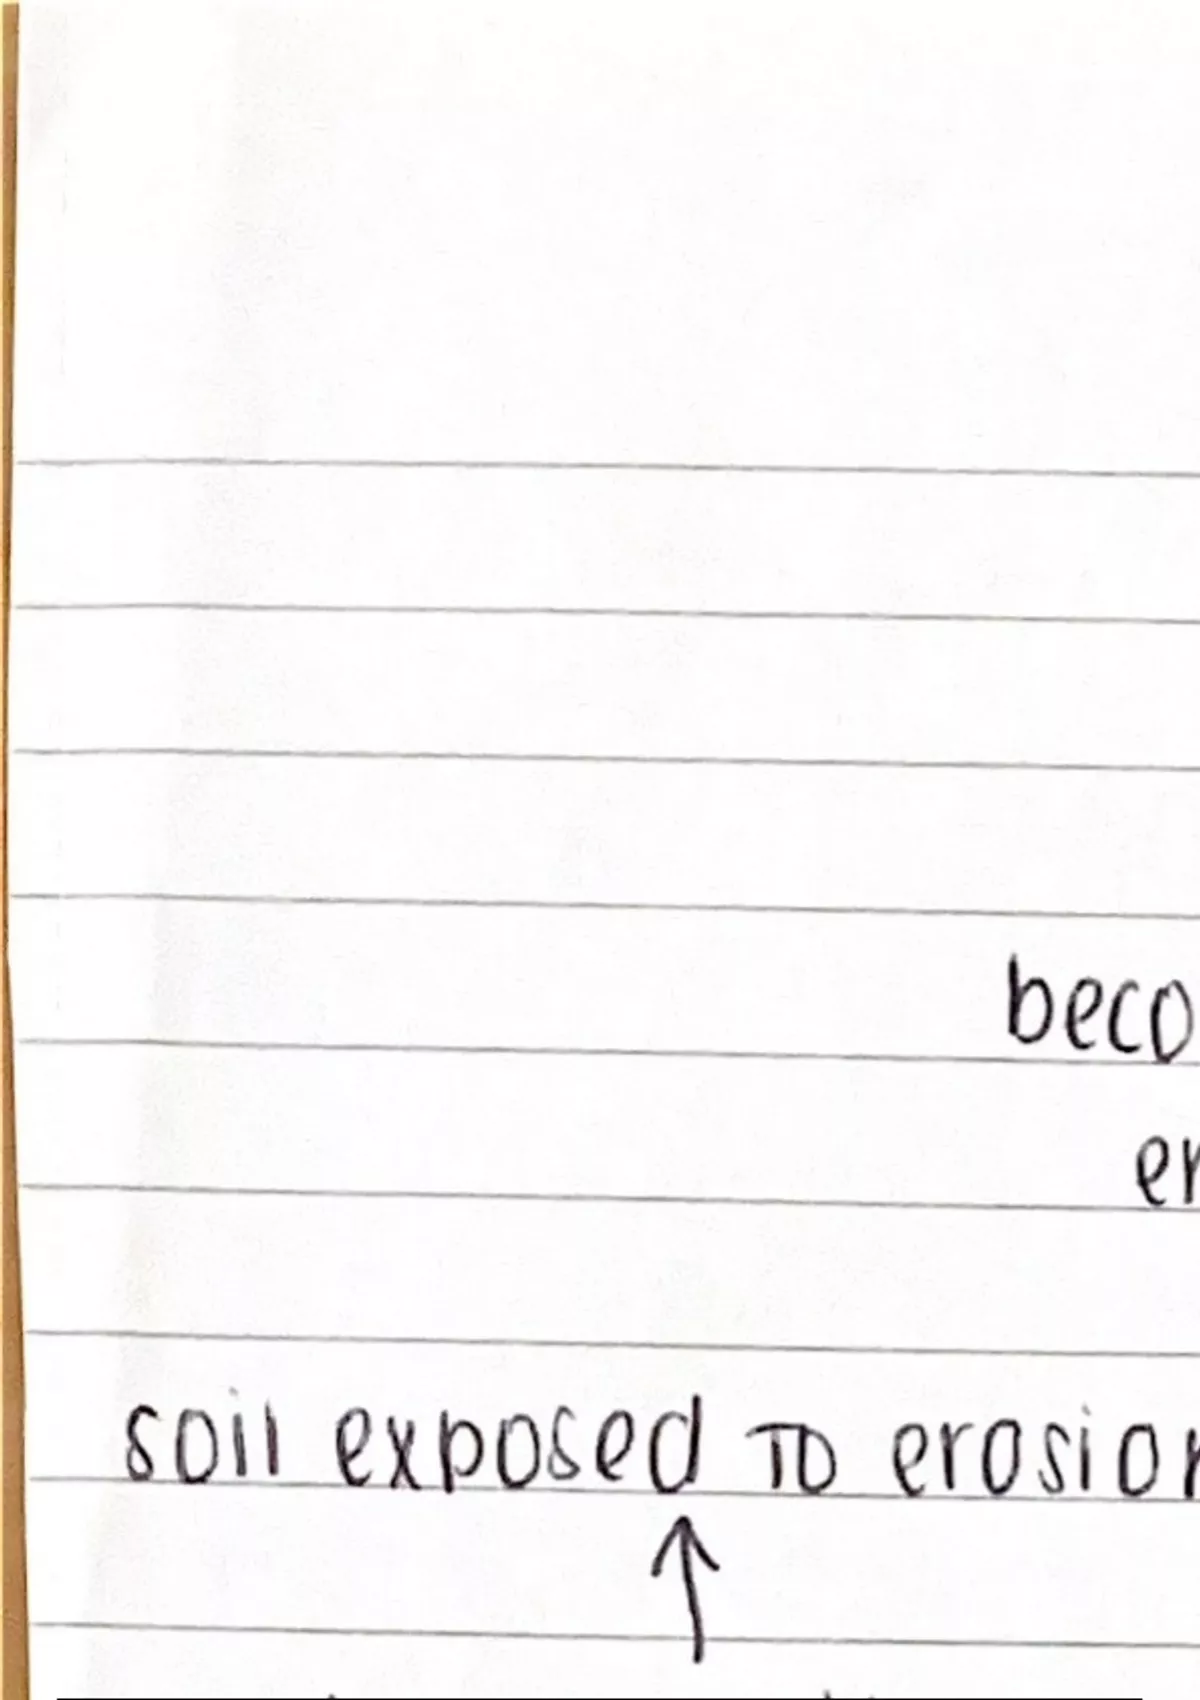 beco
er
soil exposed to erosion